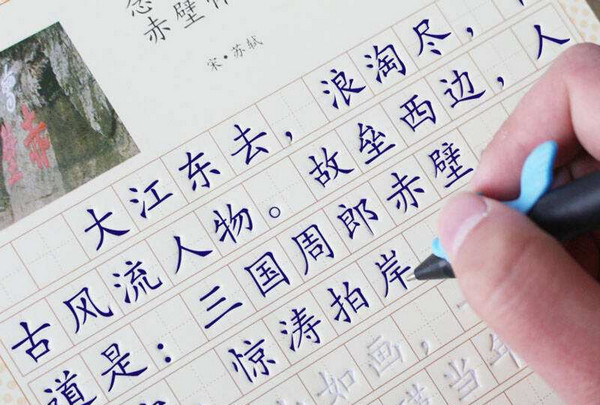 赤壁
宋·苏轼
大江东去，浪淘尽，
古风流人物。故垒西边，人
道是：三国周郎赤壁
惊涛拍岸
如画，一
当年